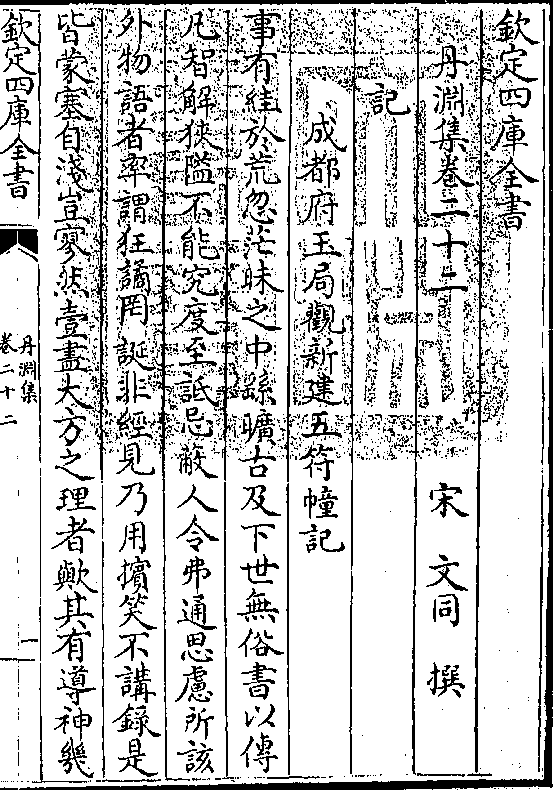 欽定四庫全書
丹淵集卷二十二
宋 文同 撰
記
成都府玉局觀新建五符幢記
事有絓於荒忽茫昧之中繇曠古及下世無俗書以傳
凡智解狹隘不能究度至詆忌蔽人令弗通思慮所該
外物語者率謂狂譎罔誕非經見乃用擯笑不講錄是
皆蒙塞自淺豈寥然壹盡大方之理者歟其有導神幾
欽定四庫全書
丹淵集
卷二十二
一